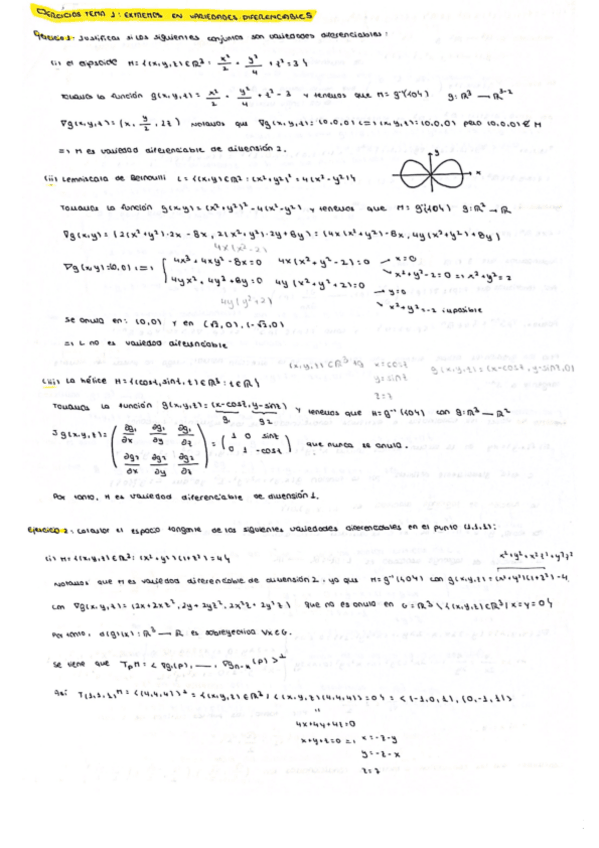 EJERCICIOS TEMA 1: EXTREMOS EN VARIEDADES DIFERENCIABLES
Ejercicio 1: Justificar si los siguientes conjuntos son variedades diferenciables:
(i) el elipsoide M={(x,y,z)∈ℝ³: x²/2 + y²/4 + z²=3}
Tomamos la función g(x,y,z)= x²/2 + y²/4 + z² - 3 y tenemos que M=g⁻¹({0}) g:ℝ³→ℝ³⁻²
∇g(x,y,z)=(x, y/2, 2z) Notamos que ∇g(x,y,z)=(0,0,0) ⟺ (x,y,z)=(0,0,0) pero (0,0,0)∉M
=> M es variedad diferenciable de dimensión 2.
(ii) Lemniscata de Bernoulli L={(x,y)∈ℝ²: (x²+y²)²=4(x²-y²)}
y
x
Tomamos la función g(x,y)=(x²+y²)²-4(x²-y²) y tenemos que M=g⁻¹({0}) g:ℝ²→ℝ
∇g(x,y)=(2(x²+y²)·2x-8x, 2(x²+y²)·2y+8y)=(4x(x²+y²)-8x, 4y(x²+y²)+8y)
4x(x²-2)
∇g(x,y)=(0,0) ⟺ { 4x³+4xy²-8x=0 4x(x²+y²-2)=0 → x=0
→ x²+y²-2=0 => x²+y²=2
4yx²+4y³+8y=0 4y(x²+y²+2)=0 → y=0
→ x²+y²=-2 imposible
4y(y²+2)
Se anula en: (0,0) y en (√2,0), (-√2,0)
=> L no es variedad diferenciable
(x,y,z)∈ℝ³ tq x=cost
y=sint
z=z
g(x,y,z)=(x-cosz, y-sinz, 0)
(iii) La hélice M={(cost, sint, t)∈ℝ³: t∈ℝ}
Tomamos la función g(x,y,z)=(x-cosz, y-sinz) y tenemos que M=g⁻¹({0}) con g:ℝ³→ℝ²
g₁ g₂
Jg(x,y,z)= (∂g₁/∂x ∂g₁/∂y ∂g₁/∂z
∂g₂/∂x ∂g₂/∂y ∂g₂/∂z) = (1 0 sinz
0 1 -cosz) que nunca se anula.
Por tanto, M es variedad diferenciable de dimensión 1.
Ejercicio 2: Calcular el espacio tangente de las siguientes variedades diferenciables en el punto (1,1,1):
(i) M={(x,y,z)∈ℝ³: (x²+y²)(1+z²)=4}
x²+y²+x²z²+y²z²
Notamos que M es variedad diferenciable de dimensión 2, ya que M=g⁻¹({0}) con g(x,y,z)=(x²+y²)(1+z²)-4
con ∇g(x,y,z)=(2x+2xz², 2y+2yz², 2x²z+2y²z) que no es anula en G=ℝ³\{(x,y,z)∈ℝ³/x=y=0}
Por tanto, d(g)(x):ℝ³→ℝ es sobreyectiva ∀x∈G.
Se tiene que TₚM=<∇g₁(p), ..., ∇gₙ₋ₖ(p)>⊥
Así T(1,1,1)M=<(4,4,4)>⊥={(x,y,z)∈ℝ³/<(x,y,z),(4,4,4)>=0}=<(-1,0,1),(0,-1,1)>
"
4x+4y+4z=0
x+y+z=0 => x=-z-y
y=-z-x
z=z